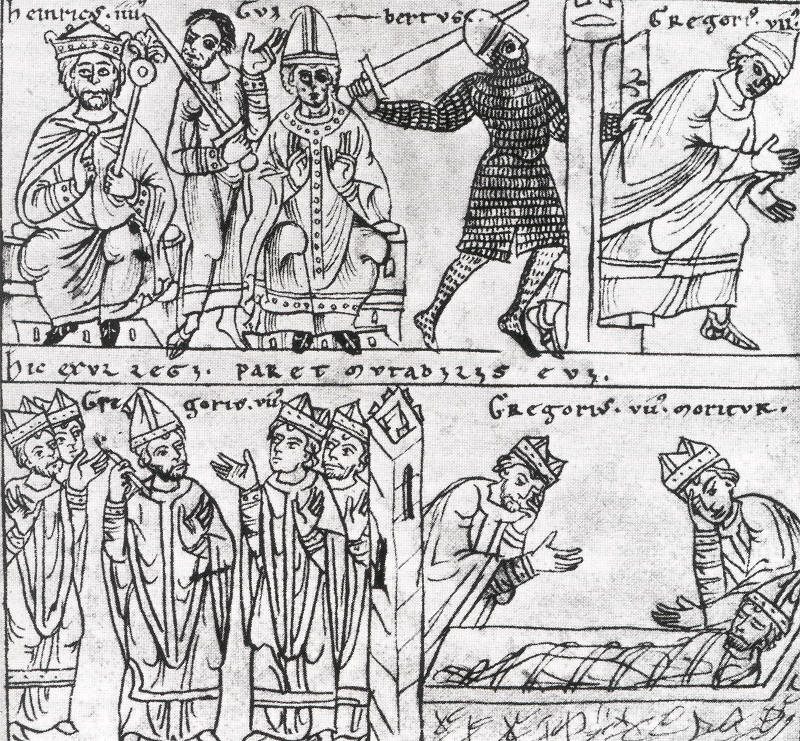 heinricꝰ. iiijꝰ
Gui bertus.
Gregoriꝰ. viiꝰ
hic exul regi. paret mutabilis evi.
Gre goriꝰ. viiꝰ
Gregoriꝰ. viiꝰ. moritur.